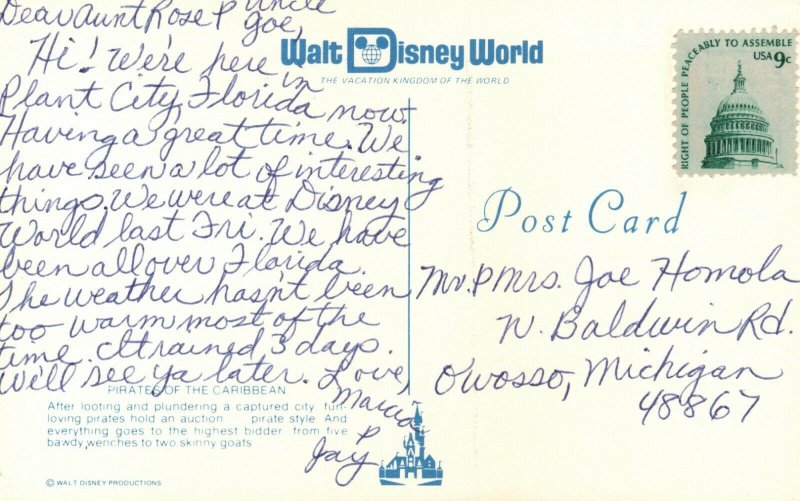 Dear Aunt Rose & Uncle
Joe,
Hi! We're here in
Plant City, Florida now.
Having a great time. We
have seen a lot of interesting
things. We were at Disney
World last Fri. We have
been all over Florida.
The weather hasn't been
too warm most of the
time. It rained 3 days.
We'll see ya later. Love,
Marcia
&
Jay
Walt Disney World
THE VACATION KINGDOM OF THE WORLD
RIGHT OF PEOPLE PEACEABLY TO ASSEMBLE
USA 9c
Post Card
Mr. & Mrs. Joe Homola
N. Baldwin Rd.
Owosso, Michigan
48867
PIRATES OF THE CARIBBEAN
After looting and plundering a captured city, fun-
loving pirates hold an auction pirate style. And
everything goes to the highest bidder from five
bawdy wenches to two skinny goats
© WALT DISNEY PRODUCTIONS